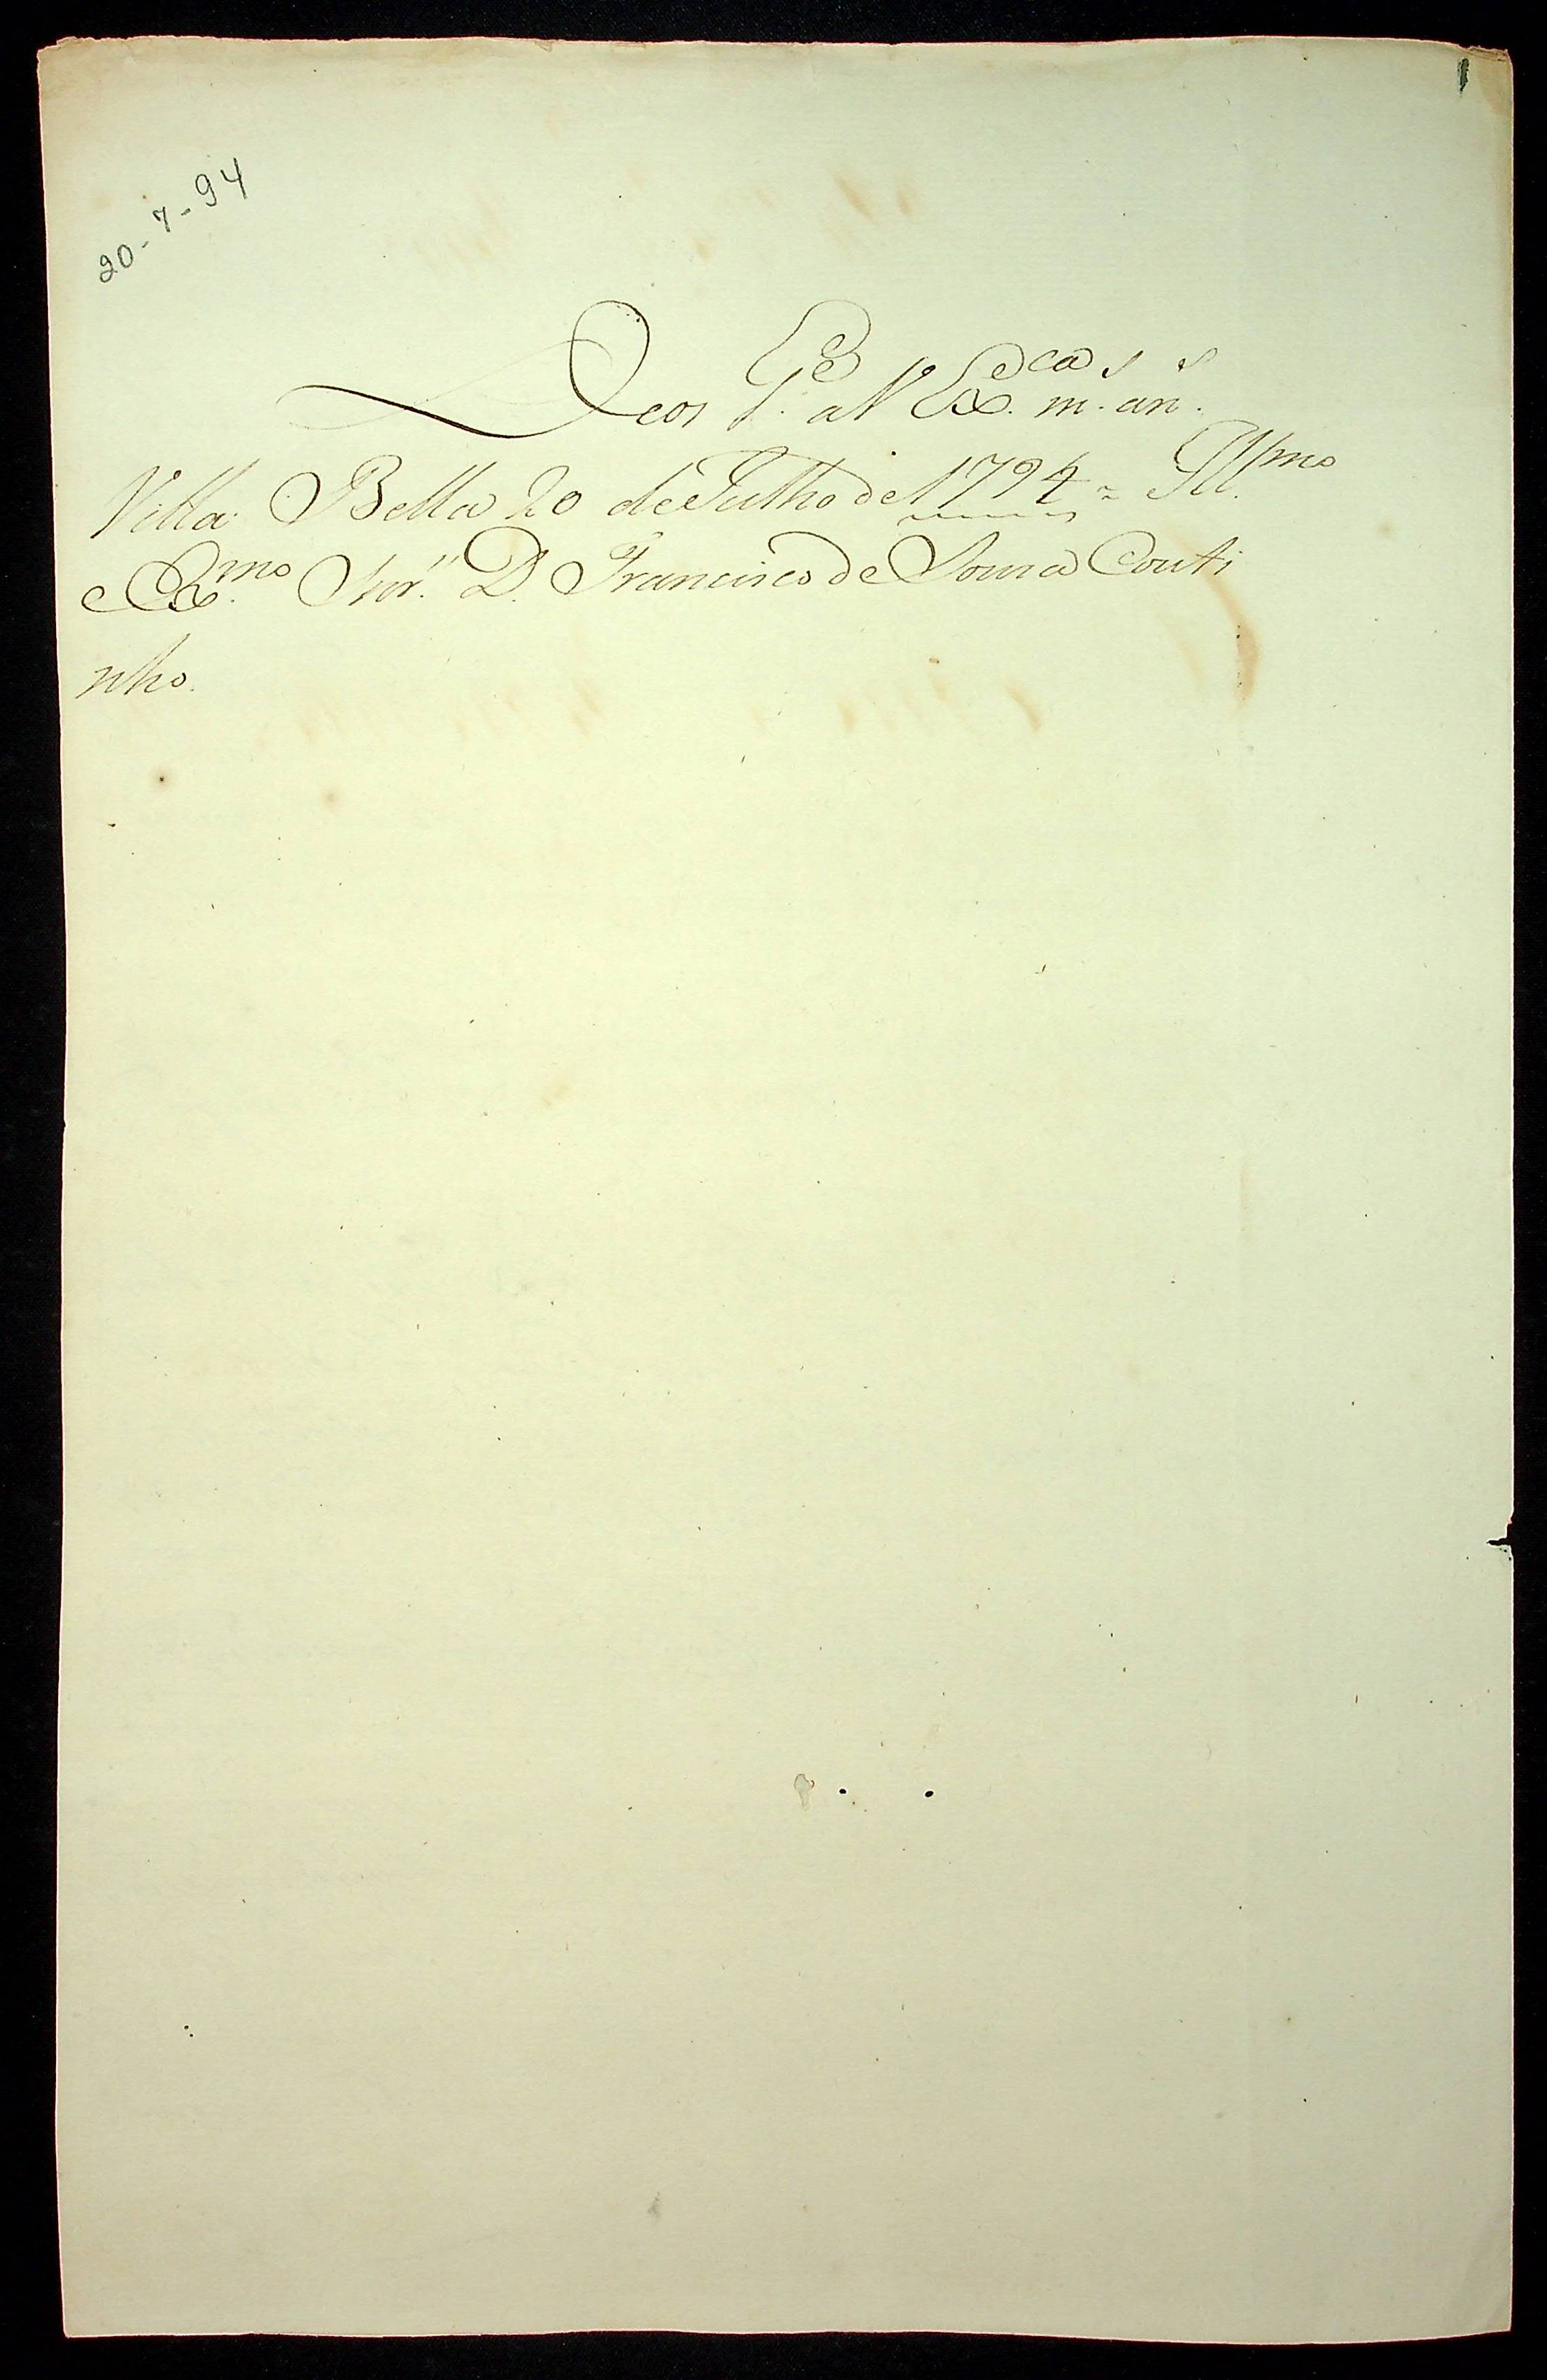 20-7-94
Deos G.de a V Ex.ca m.s an.s
Villa Bella 20 de Julho de 1794 = Ill.mo
e Ex.mo Snr.' D. Francisco de Souza Couti
nho.